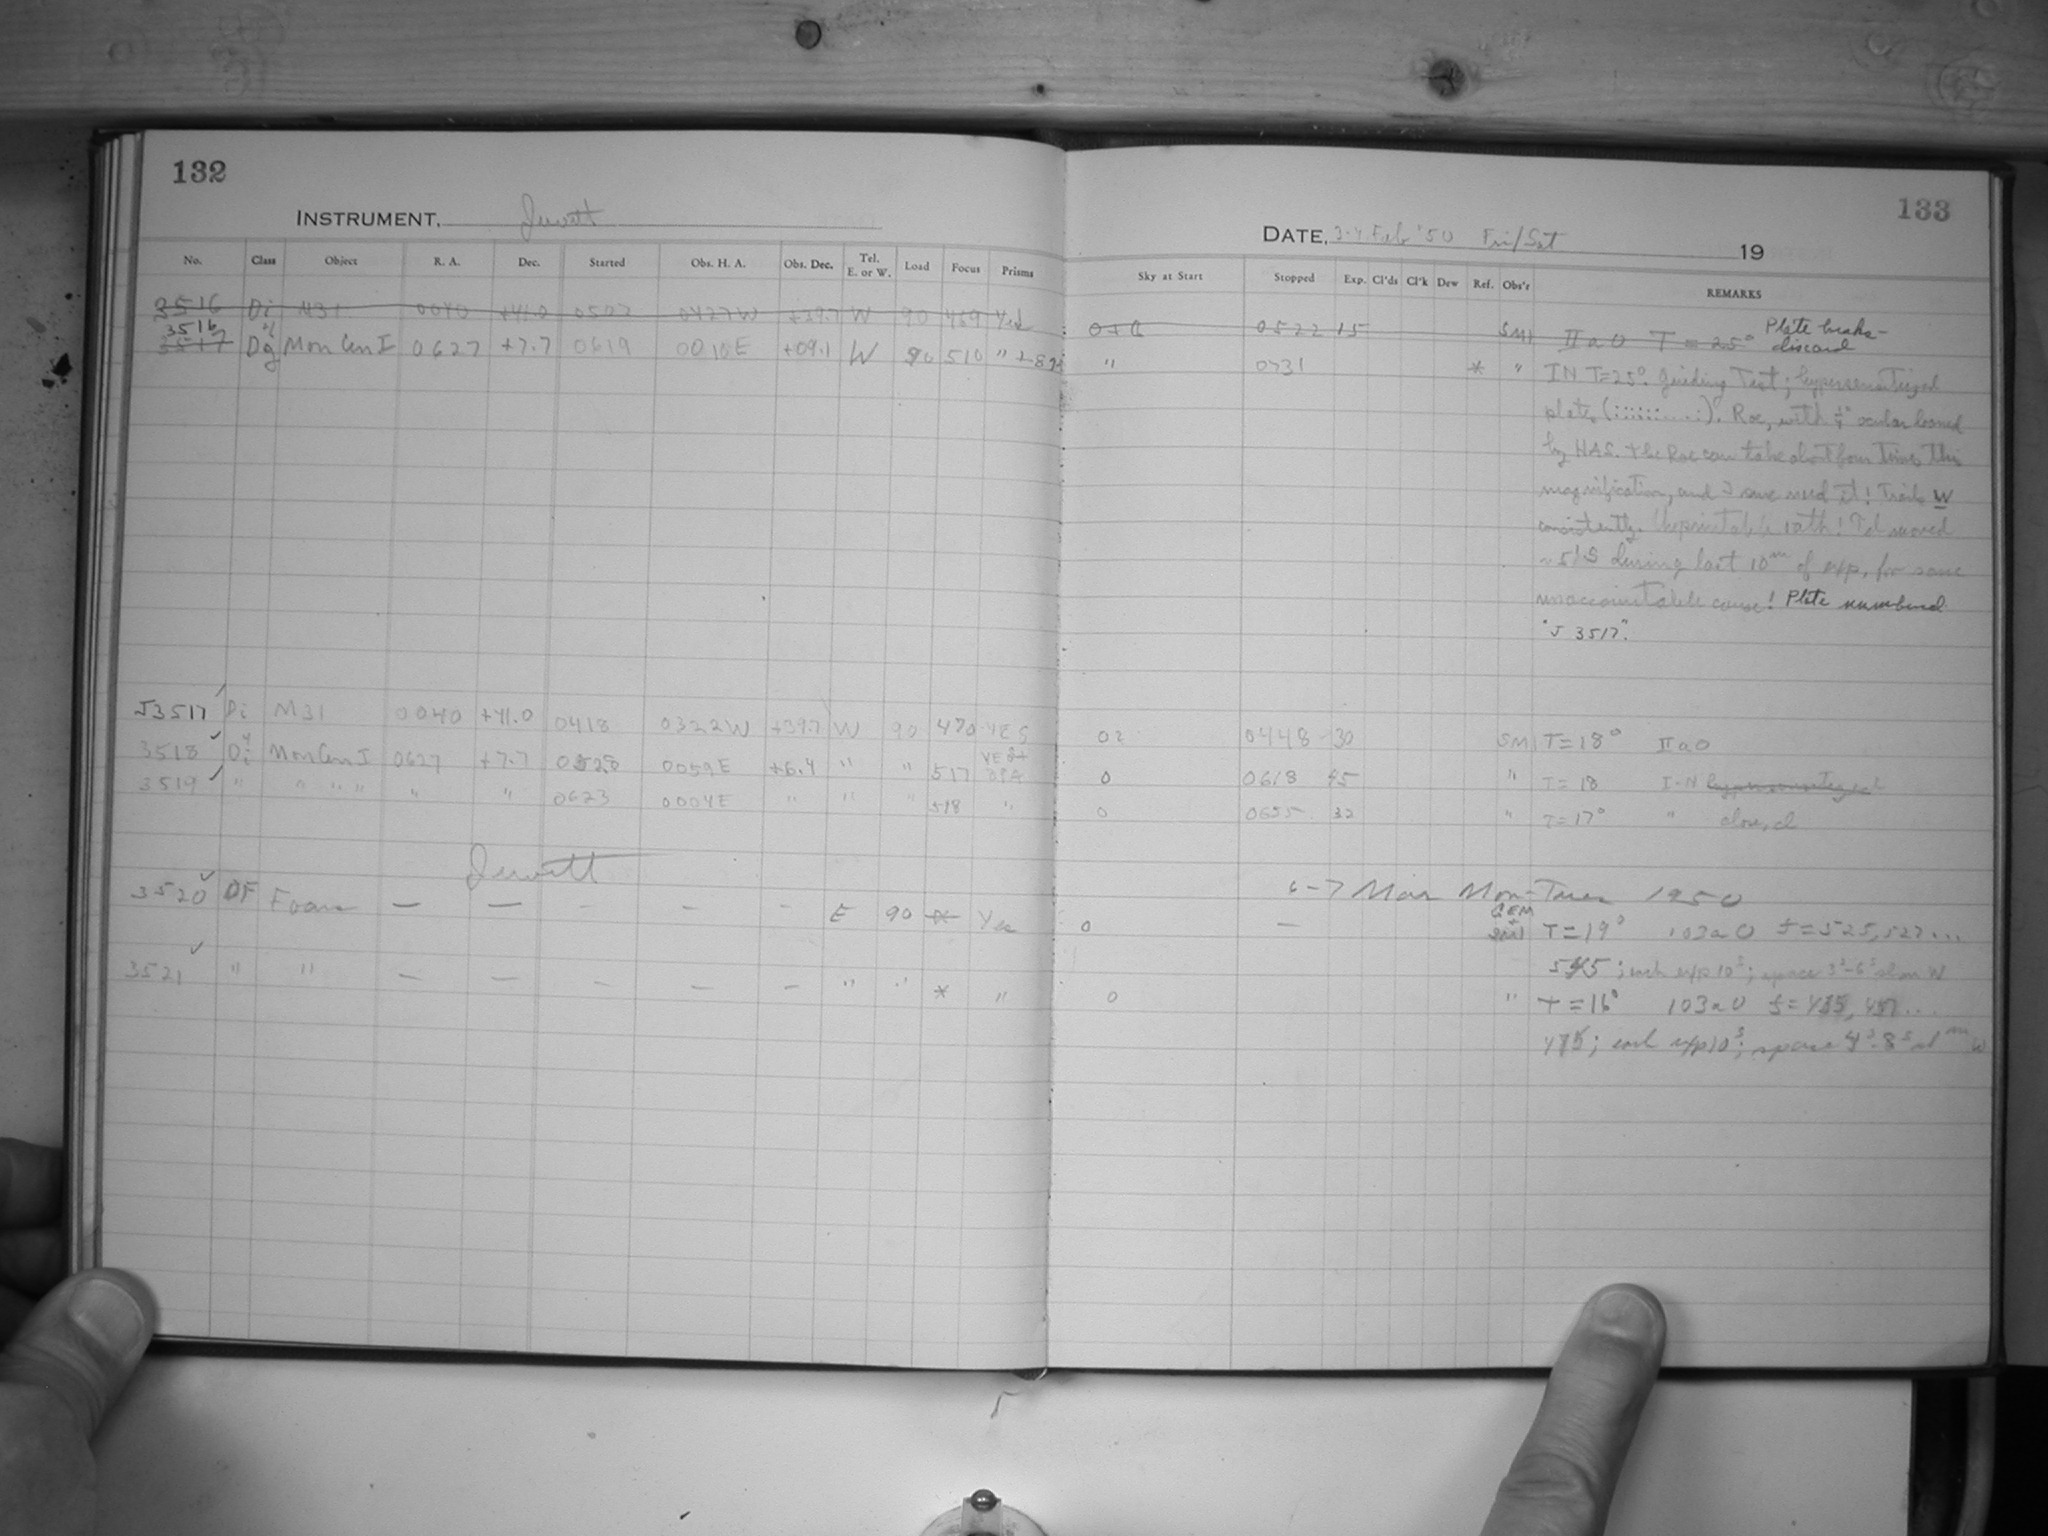 132
INSTRUMENT. Jewett
No. Class Object R. A. Dec. Started Obs. H. A. Obs. Dec. Tel. E. or W. Load Focus Prisms
3516 Di M31 0040 +41.0 0507 0427W +39.7 W 90 469 Yes
3516
3517 Dg Mon Cen I 0627 +7.7 0619 0010E +09.1 W 90 510 "
J3517 Di M31 0040 +41.0 0418 0322W +39.7 W 90 470 YES
3518 Di Mon Cen I 0627 +7.7 0525 0059E +6.4 " " 517 YES+
3519 " " " " " " 0623 0004E " " " 518 "
Jewett
3520 DF Foam — — - - - E 90 Yes
3521 " " — — — — — " " * "
133
DATE, 3-4 Feb '50 Fri/Sat 19
Sky at Start Stopped Exp. Cl'ds Cl'k Dew Ref. Obs'r REMARKS
0522 15 SM1 IIaO T = 25° Plate breaks-
discard
" 0731 * " IN T=25°. Guiding Test; hypersensitized
plate (:::::....:). Roe, with ocular loaned
by HAS. The Roe can take about four times this
magnification, and I sure need it! Trails W
consistently. Unprintable oath! Tel moved
~5'S during last 10m of exp, for some
unaccountable cause! Plate numbered
"J 3517".
02 0448 30 SM1 T=18° IIaO
0 0618 45 " T= 18 I-N hypersensitized
0 0655 32 " T=17° "
6-7 Mar Mon-Tues 1950
0 — SM1 T=19° 103aO f=525,527...
545; each exp 10s; space 3s-6s W
0 " T=16° 103aO f=455, 457...
475; each exp 10s; space 4s-8s W